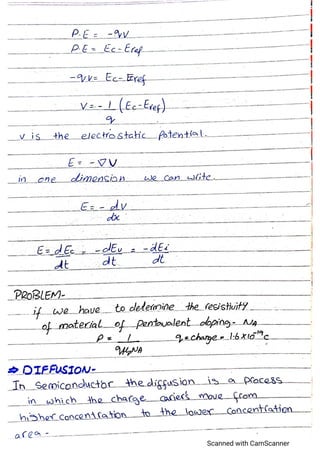 P.E = -qV
P.E = Ec - Eref
-qV = Ec - Eref
V = - 1/q (Ec - Eref)
V is the electrostatic potential.
E = - ∇V
in one dimension we can write.
E = - dV/dx
E = dEc/dt = - dEv/dt = - dEi/dt
PROBLEM-
if we have to determine the resistivity
of material of pentavalent doping- NA
P = 1/qμpNA q = charge = 1.6 x 10^-19 C
⇒ DIFFUSION-
In semiconductor the diffusion is a process
in which the charge cariers move from
higher concentration to the lower concentration
area -
Scanned with CamScanner